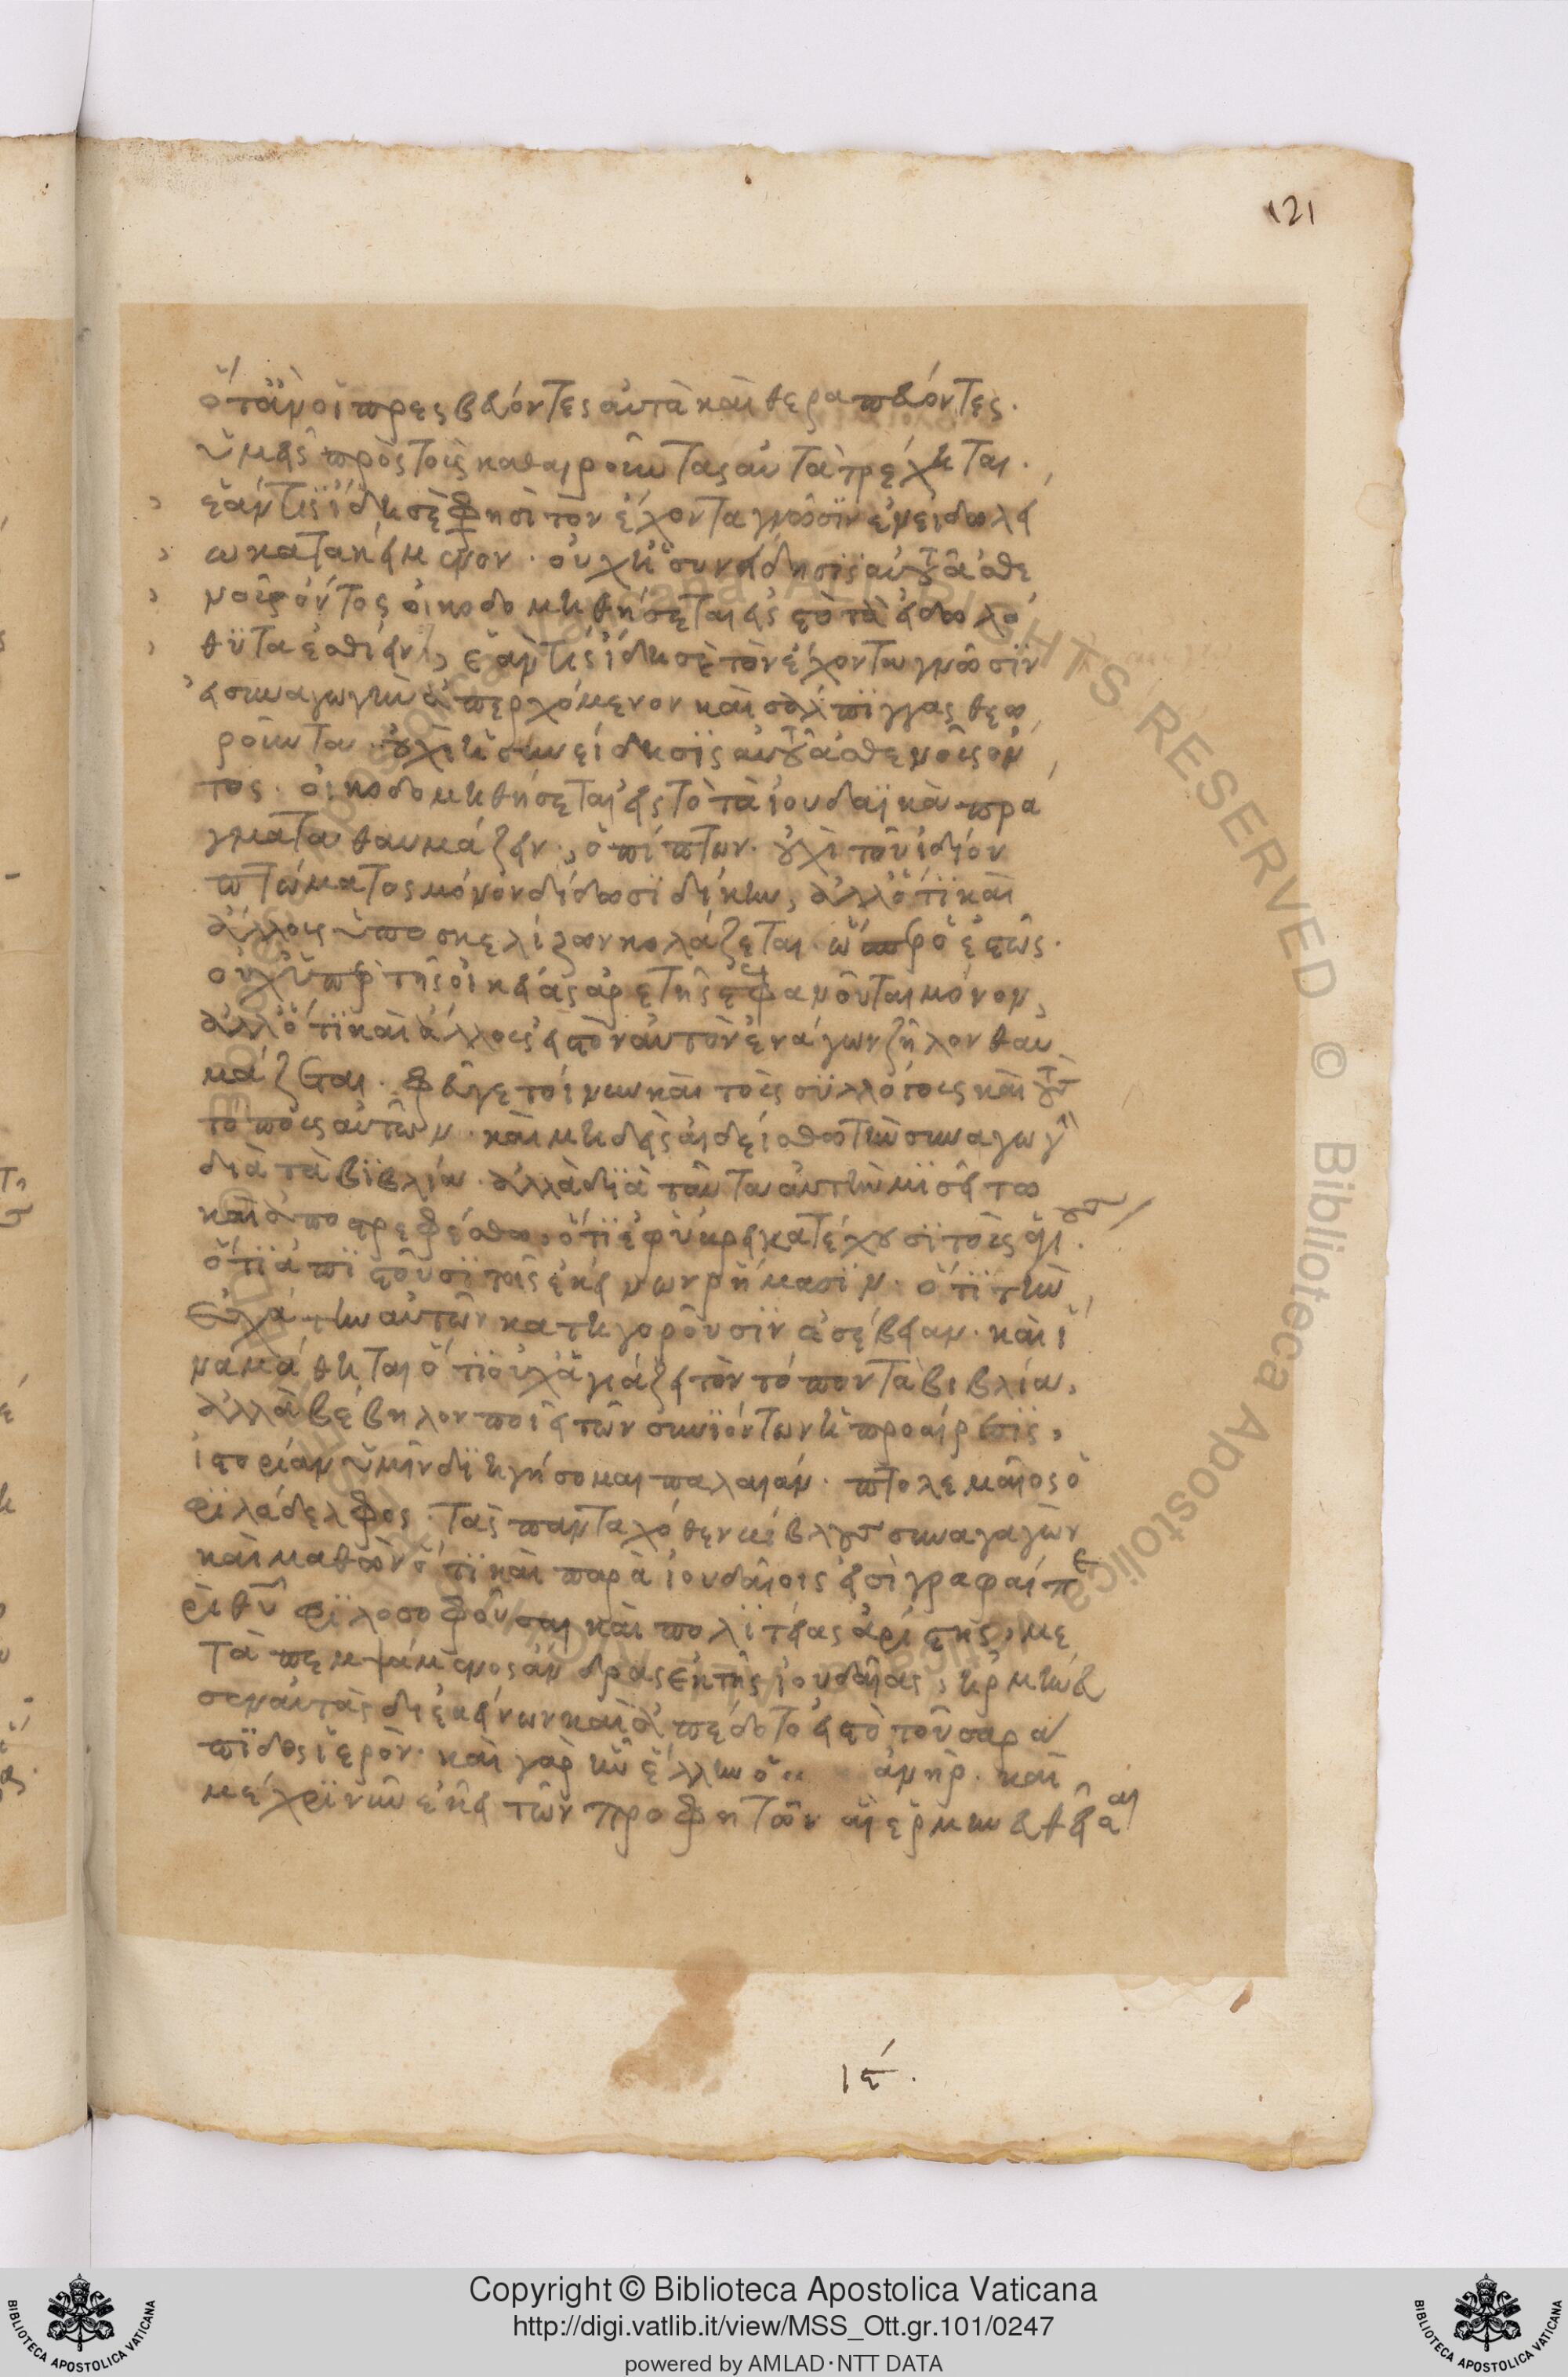 121
ὅταν οἱ πρεσβεύοντες αὐτὰ καὶ θεραπεύοντες.
ὑμεῖς πρὸς τοὺς καθαιροῦντας αὐτὰ τρέχηται.
ἐάν τις ἴδη σέ φησι τὸν ἔχοντα γνῶσιν ἐν εἰδωλεί
ω κατακείμενον. οὐχ ἡ συνείδησις αὐτοῦ ἀσθε
νοῦς ὄντος οἰκοδομηθήσεται εἰς τὸ τὰ εἰδωλό
θυτα ἐσθίειν, ἐάν τις ἴδη σε τὸν ἔχοντα γνῶσιν
εἰς συναγωγὴν ἀπερχόμενον καὶ σάλπιγγας θεω
ροῦντα. οὐχὶ ἡ συνείδησις αὐτοῦ ἀσθενοῦς ὄν
τος. οἰκοδομηθήσεται εἰς τὸ τὰ ἰουδαϊκὰ πρά
γματα θαυμάζειν, ὁ πίπτων. οὐχὶ τοῦ ἰδίου
πτώματος μόνον δίδωσι δίκην, ἀλλ' ὅτι καὶ
ἄλλους ὑποσκελίζων κολάζεται. ὥσπερ ὁ ἑστώς.
οὐχ ὑπὲρ τῆς οἰκείας ἀρετῆς στεφανοῦται μόνον,
ἀλλ' ὅτι καὶ ἄλλους εἰς τὸν αὐτὸν ἐνάγων ζῆλον θαυ
μάζεται. φεύγετε τοίνυν καὶ τοὺς συλλόγους καὶ τοὺς
τόπους αὐτῶν. καὶ μηδεὶς αἰδείσθω τὴν συναγωγὴν
διὰ τὰ βιβλία. ἀλλὰ διὰ ταῦτα αὐτὴν μισείτω
καὶ ἀποστρεφέσθω, ὅτι ἐφύβρει κατέχουσι τοὺς ἁγίους.
ὅτι ἀπιστοῦσι τοῖς ἐκείνων ῥήμασιν. ὅτι τὴν
ἐσχάτην αὐτῶν κατηγοροῦσιν ἀσέβειαν. καὶ ἵ
να μάθηται ὅτι οὐχ ἁγιάζει τὸν τόπον τὰ βιβλία,
ἀλλὰ βέβηλον ποιεῖ τῶν συνιόντων ἡ προαίρεσις,
ἱστορίαν ὑμῖν διηγήσομαι παλαιάν. πτολεμαῖος ὁ
φιλάδελφος. τὰς πανταχόθεν βίβλους συναγαγὼν
καὶ μαθὼν ὅτι καὶ παρὰ ἰουδαίοις εἰσὶ γραφαὶ πε
ρὶ θεοῦ φιλοσοφοῦσαι καὶ πολιτείας ἀρίστης, με
ταπεμψάμενος ἄνδρας ἐκ τῆς ἰουδαίας, ἡρμήνευ
σεν αὐτὰς δι' ἐκείνων καὶ ἀπέδοτο εἰς τὸ τοῦ σαρά
πιδος ἱερόν. καὶ γὰρ ἦν ἕλλην ὁ ἀνήρ. καὶ
μέχρι νῦν ἐκεῖ τῶν προφητῶν αἱ ἑρμηνευθεῖσαι
ιϛ.
Copyright © Biblioteca Apostolica Vaticana
http://digi.vatlib.it/view/MSS_Ott.gr.101/0247
powered by AMLAD·NTT DATA